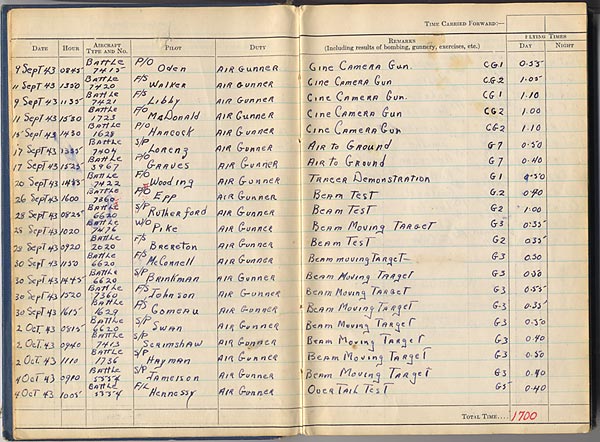 TIME CARRIED FORWARD:—
DATE HOUR AIRCRAFT TYPE AND NO. PILOT DUTY REMARKS (Including results of bombing, gunnery, exercises, etc.) FLYING TIMES DAY NIGHT
9 Sept 43 0845 Battle 7415 P/O Oden Air Gunner Cine Camera Gun. CG1 0.55
11 Sept 43 1350 Battle 7420 F/S Walker Air Gunner Cine Camera Gun CG2 1.05
9 Sept 43 1135 Battle 7421 F/S Libby Air Gunner Cine Camera Gun. CG1 1.10
11 Sept 43 1530 Battle 1723 F/O MaDonald Air Gunner Cine Camera Gun CG2 1.00
15 Sept 43 1430 Battle 1628 P/O Hancock Air Gunner Cine Camera Gun CG2 1.10
17 Sept 43 1335 Battle 7404 S/P Lorenz Air Gunner Air to Ground G7 0.50
17 Sept 43 1525 Battle 3967 P/O Graves Air Gunner Air to Ground G7 0.40
20 Sept 43 1435 Battle 7422 F/O Wooding Air Gunner Tracer Demonstration G1 0.50
26 Sept 43 1600 Battle 7360 P/O Epp Air Gunner Beam Test G2 0.40
28 Sept 43 0825 Battle 6620 S/P Rutherford Air Gunner Beam Test G2 1.00
28 Sept 43 1020 Battle 7476 W/O Pike Air Gunner Beam Moving Target G3 0.35
28 Sept 43 0920 Battle 2020 F/S Brereton Air Gunner Beam Test G2 0.35
30 Sept 43 1150 Battle 6620 F/S McConnell Air Gunner Beam moving Target G3 0.30
30 Sept 43 1445 Battle 6620 S/P Brinkman Air Gunner Beam Moving Target G3 0.50
30 Sept 43 1520 Battle 7360 F/S Johnson Air Gunner Beam Moving Target G3 0.55
30 Sept 43 1615 Battle 1629 F/S Comeau Air Gunner Beam Moving Target G3 0.35
2 Oct. 43 0815 Battle 6620 S/P Swan Air Gunner Beam Moving Target G3 0.50
2 Oct. 43 0940 Battle 7413 S/P Scrimshaw Air Gunner Beam Moving Target G3 0.40
2 Oct 43 1110 Battle 1736 S/P Hayman Air Gunner Beam Moving Target G3 0.50
4 Oct 43 0910 Battle 5354 S/P Jameison Air Gunner Beam Moving Target G3 0.40
4 Oct 43 1005 Battle 5354 F/L Hennessy Air Gunner Over Tail Test G5 0.40
TOTAL TIME.... 1700